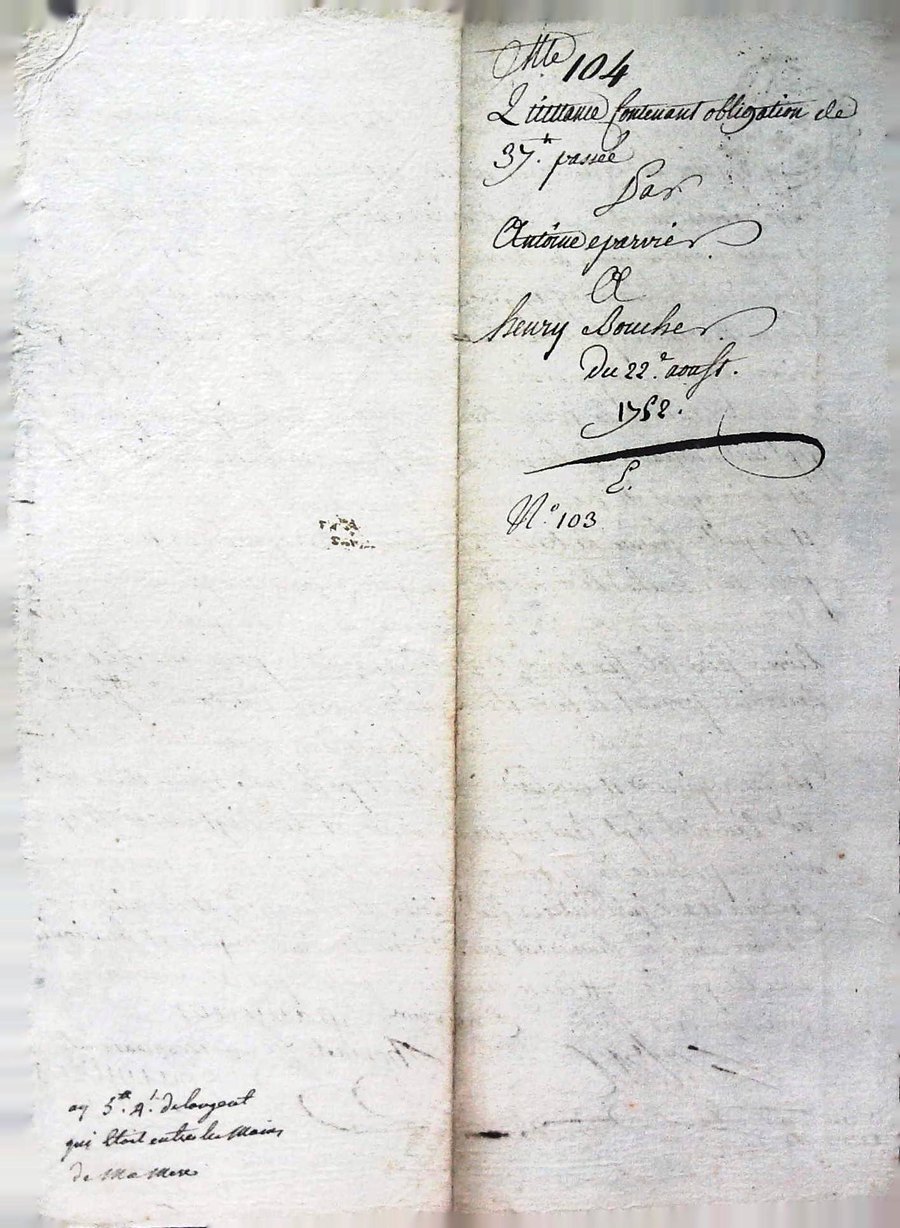 Cotte 104
Quittance Contenant obligation de
37.tt passée
Par
Antoine eparvier
A
henry Boucher
Du 22.e aoust.
1752.
E.
N.o 103
ay 5.tt 4.s de l'argent
qui Etoit entre les Mains
de Ma Mere